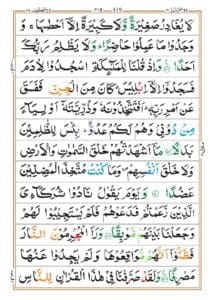 لَا يُغَادِرُ صَغِيْرَةً وَّلَا كَبِيْرَةً اِلَّاۤ اَحْصٰىهَا ۚ
وَوَجَدُوْا مَا عَمِلُوْا حَاضِرًا ؕ وَلَا يَظْلِمُ رَبُّكَ
اَحَدًا ۝ وَاِذْ قُلْنَا لِلْمَلٰٓئِكَةِ اسْجُدُوْا لِاٰدَمَ
فَسَجَدُوْۤا اِلَّاۤ اِبْلِيْسَ ؕ كَانَ مِنَ الْجِنِّ فَفَسَقَ
عَنْ اَمْرِ رَبِّهٖ ؕ اَفَتَتَّخِذُوْنَهٗ وَذُرِّيَّتَهٗۤ اَوْلِيَآءَ
مِنْ دُوْنِيْ وَهُمْ لَكُمْ عَدُوٌّ ؕ بِئْسَ لِلظّٰلِمِيْنَ
بَدَلًا ۝ مَاۤ اَشْهَدْتُّهُمْ خَلْقَ السَّمٰوٰتِ وَالْاَرْضِ
وَلَا خَلْقَ اَنْفُسِهِمْ ۪ وَمَا كُنْتُ مُتَّخِذَ الْمُضِلِّيْنَ
عَضُدًا ۝ وَيَوْمَ يَقُوْلُ نَادُوْا شُرَكَآءِيَ
الَّذِيْنَ زَعَمْتُمْ فَدَعَوْهُمْ فَلَمْ يَسْتَجِيْبُوْا لَهُمْ
وَجَعَلْنَا بَيْنَهُمْ مَّوْبِقًا ۝ وَرَاَ الْمُجْرِمُوْنَ النَّارَ
فَظَنُّوْۤا اَنَّهُمْ مُّوَاقِعُوْهَا وَلَمْ يَجِدُوْا عَنْهَا
مَصْرِفًا ۝ وَلَقَدْ صَرَّفْنَا فِيْ هٰذَا الْقُرْاٰنِ لِلنَّاسِ